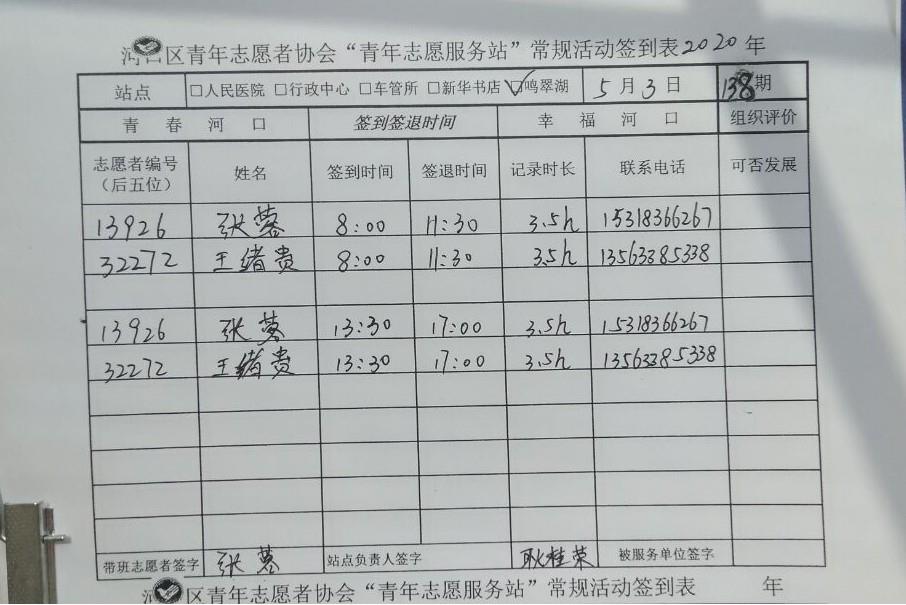 河口区青年志愿者协会“青年志愿服务站”常规活动签到表2020年
站点 □人民医院 □行政中心 □车管所 □新华书店 ☑鸣翠湖 5月3日 138期
青春河口 签到签退时间 幸福河口 组织评价
志愿者编号（后五位） 姓名 签到时间 签退时间 记录时长 联系电话 可否发展
13926 张蓉 8:00 11:30 3.5h 15318366267
32272 王绪贵 8:00 11:30 3.5h 13563385338
13926 张蓉 13:30 17:00 3.5h 15318366267
32272 王绪贵 13:30 17:00 3.5h 13563385338
带班志愿者签字 张蓉 站点负责人签字 耿桂荣 被服务单位签字
河口区青年志愿者协会“青年志愿服务站”常规活动签到表 年